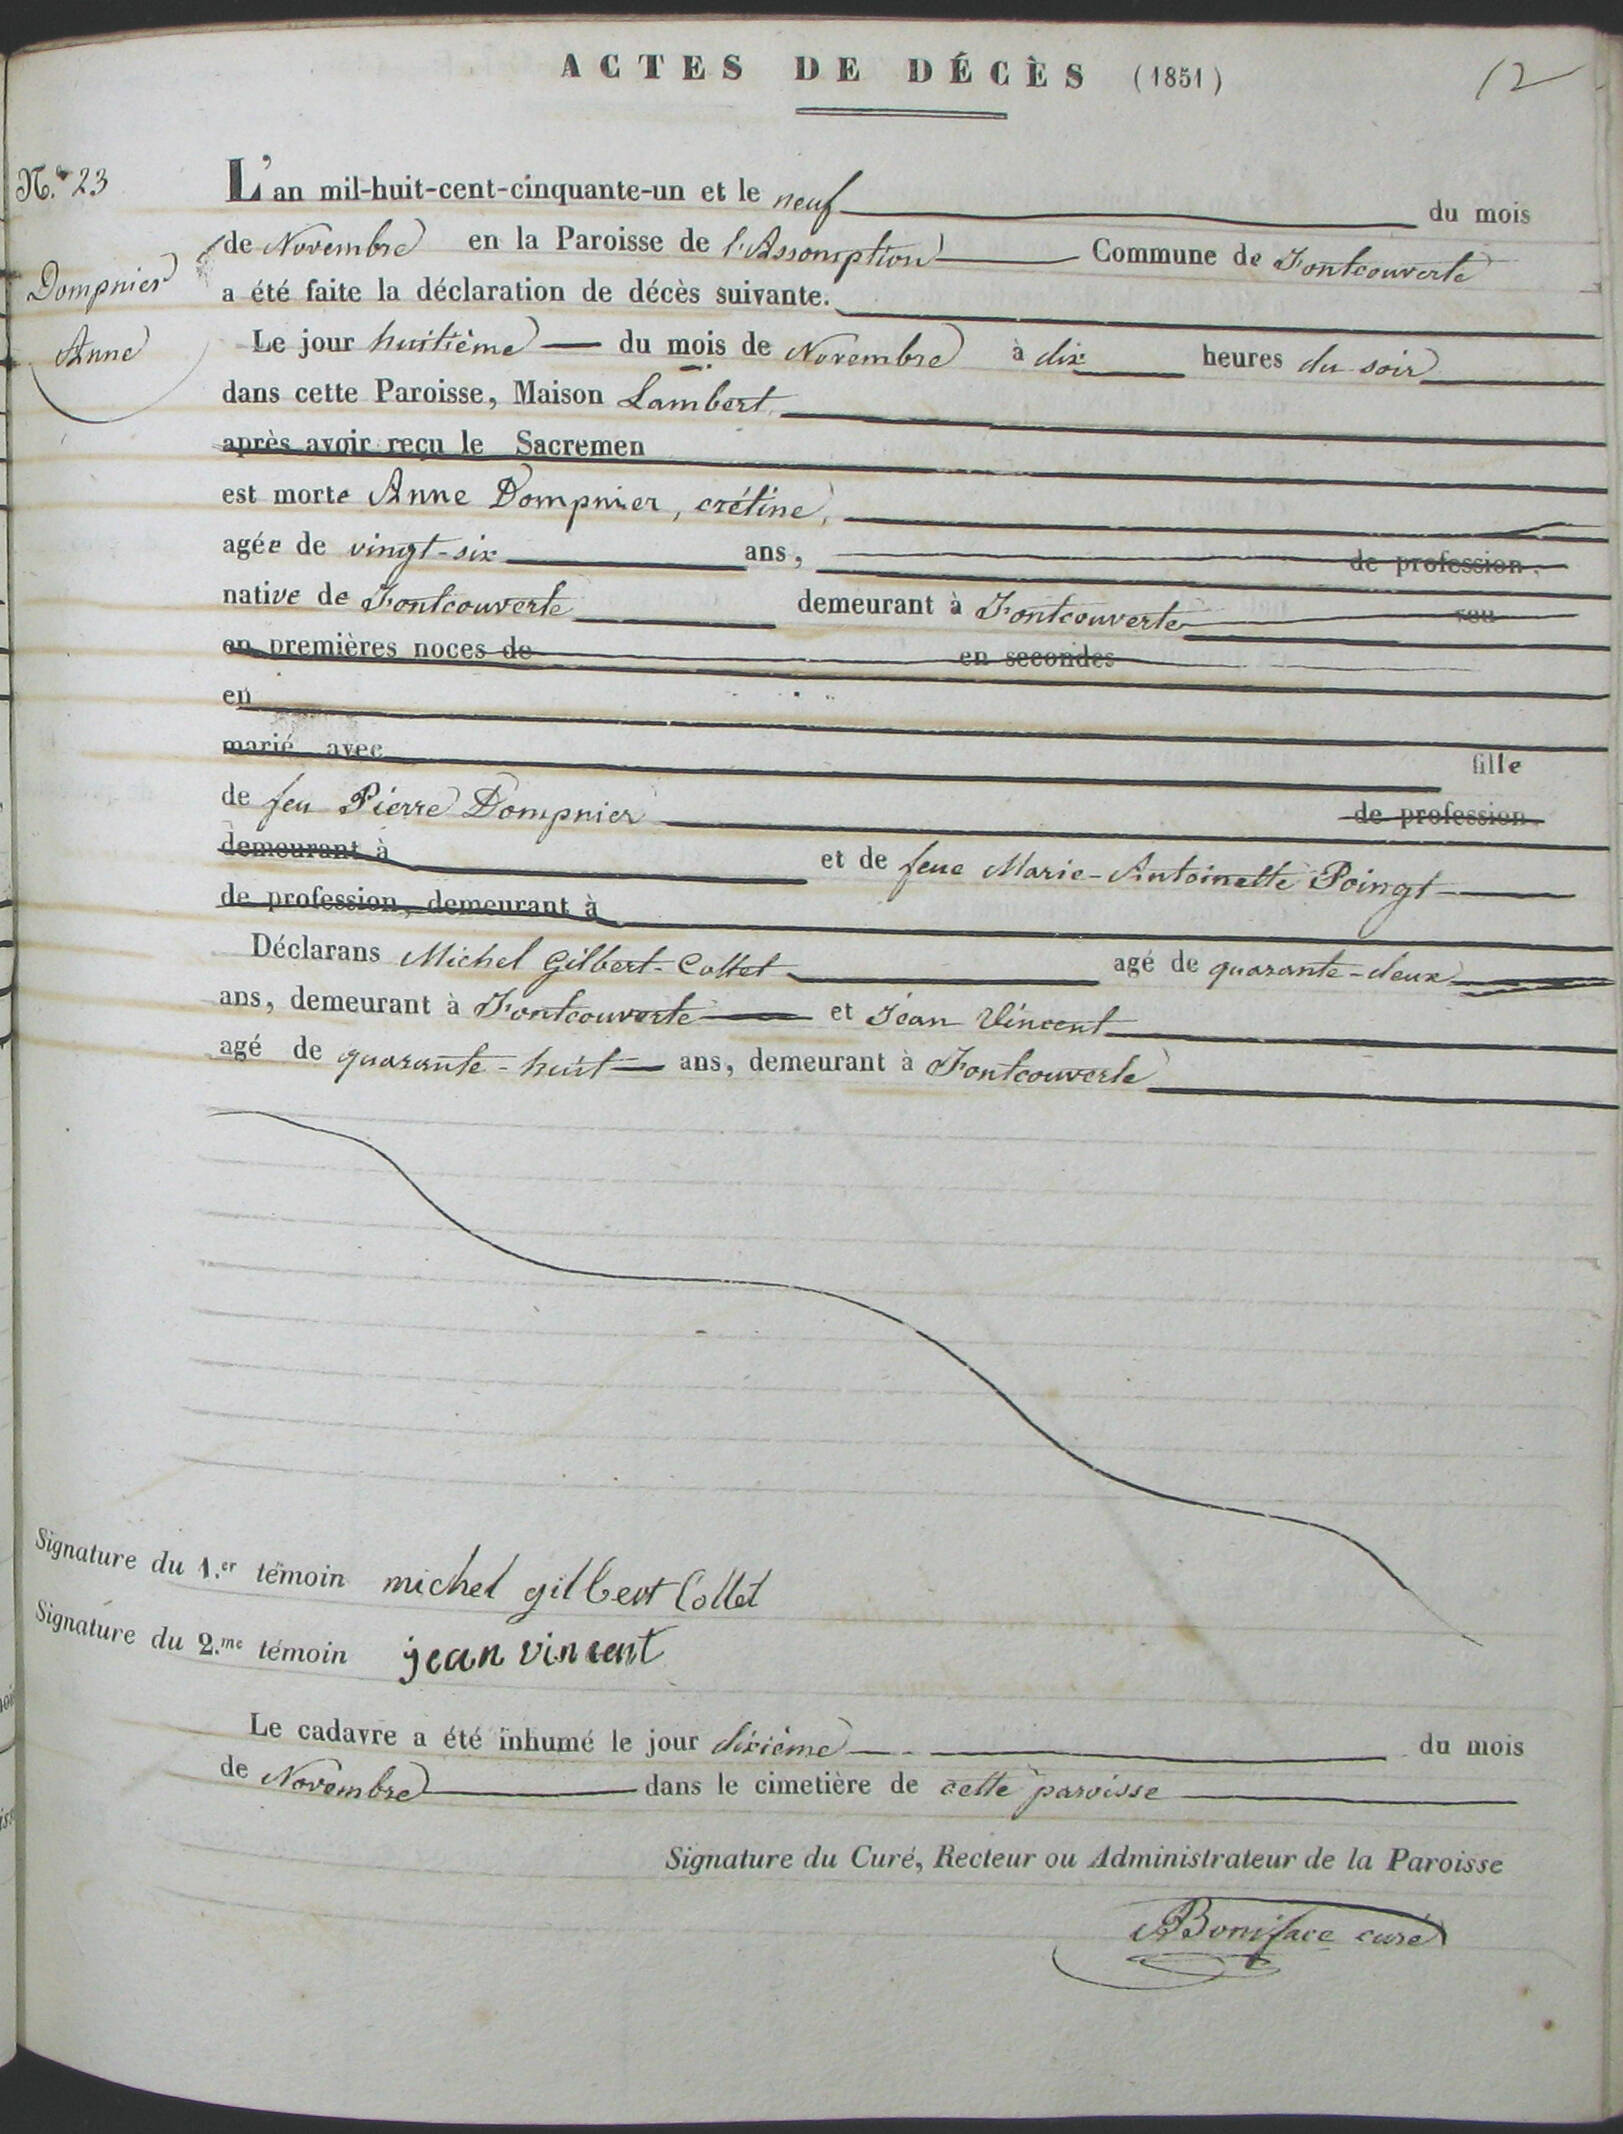 ACTES DE DÉCÈS (1851)
12
N.° 23
Dompnier
Anne
L'an mil-huit-cent-cinquante-un et le neuf du mois
de Novembre en la Paroisse de l'Assomption Commune de Fontcouverte
a été faite la déclaration de décès suivante.
Le jour huitième du mois de Novembre à dix heures du soir
dans cette Paroisse, Maison Lambert
après avoir reçu le Sacremen
est morte Anne Dompnier, crétine,
agée de vingt-six ans, de profession.
native de Fontcouverte demeurant à Fontcouverte veu
en premières noces de en secondes
en
marié avec fille
de feu Pierre Dompnier de profession.
demeurant à et de feue Marie-Antoinette Poingt
de profession, demeurant à
Déclarans Michel Gilbert-Collet agé de quarante-deux
ans, demeurant à Fontcouverte et Jean Vincent
agé de quarante-huit ans, demeurant à Fontcouverte
Signature du 1.er témoin michel gilbert Collet
Signature du 2.me témoin jean vincent
Le cadavre a été inhumé le jour dixième du mois
de Novembre dans le cimetière de cette paroisse
Signature du Curé, Recteur ou Administrateur de la Paroisse
Boniface curé